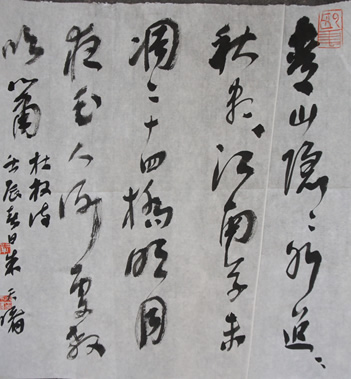 青山隱〻水迢〻
秋盡江南草未
凋二十四橋明月
夜玉人何處教
吹簫
杜牧诗
壬辰春日